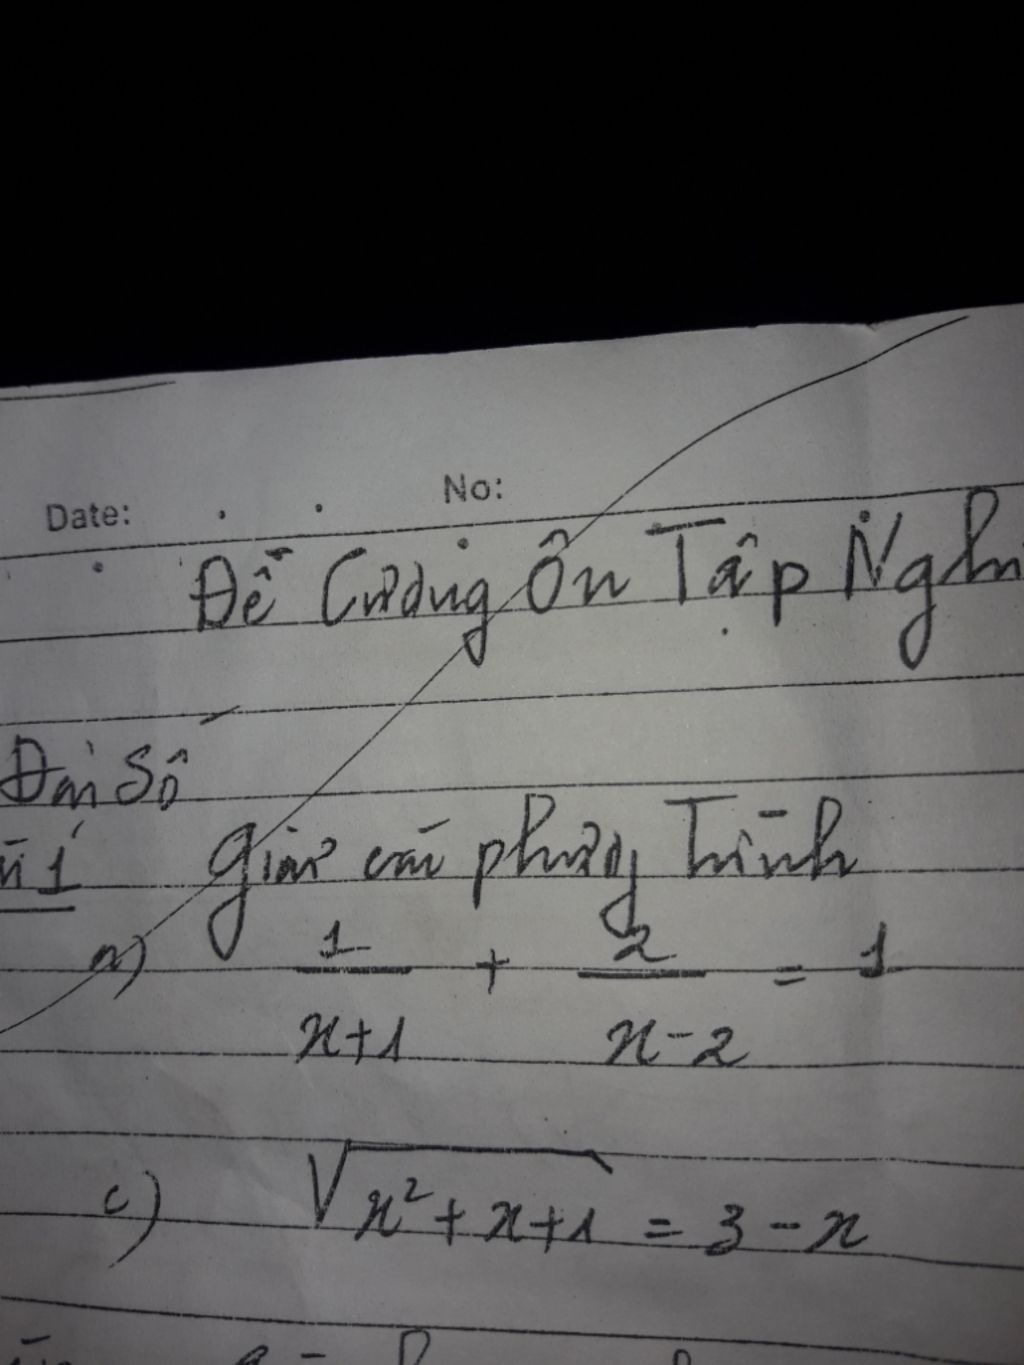 Date: No:
Đề Cương Ôn Tập
Đại Số
1 Giải các phương Trình
a) 1/(x+1) + 2/(x-2) = 1
c) √(x²+x+1) = 3-x